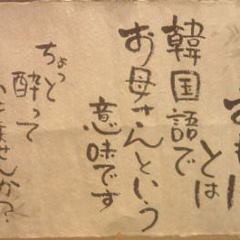 とは
韓国語で
お母さんという
意味です
ちょっと
酔って
いきませんか?